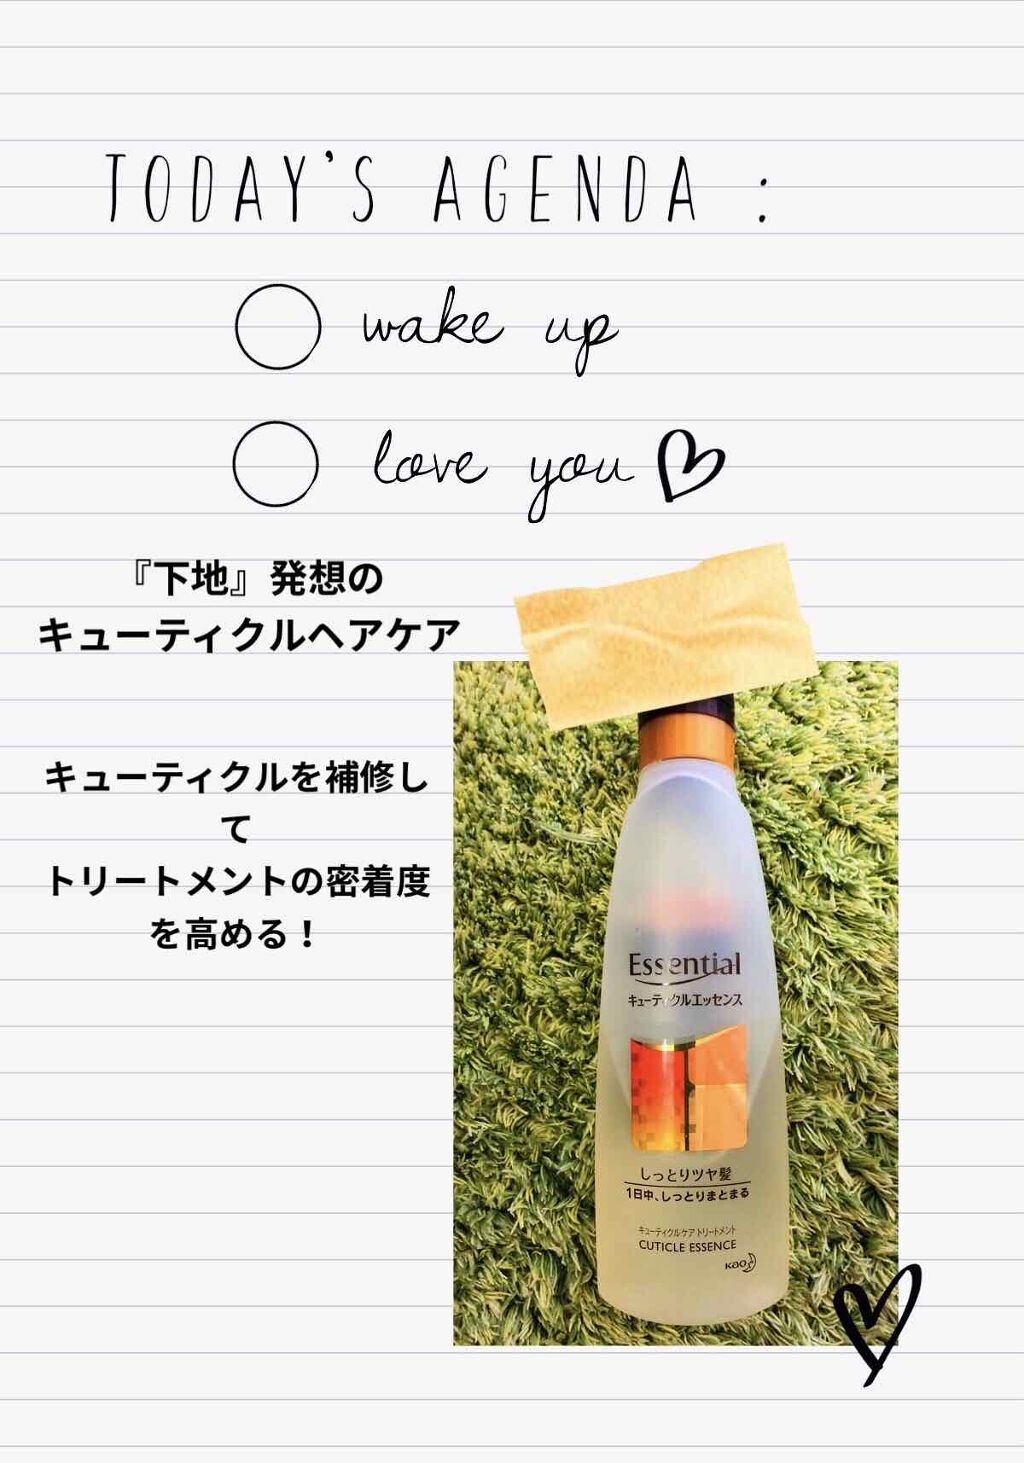 TODAY'S AGENDA :
wake up
love you
『下地』発想の
キューティクルヘアケア
キューティクルを補修し
て
トリートメントの密着度
を高める！
Essential
キューティクルエッセンス
しっとりツヤ髪
1日中、しっとりまとまる
キューティクルケア トリートメント
CUTICLE ESSENCE
Kao